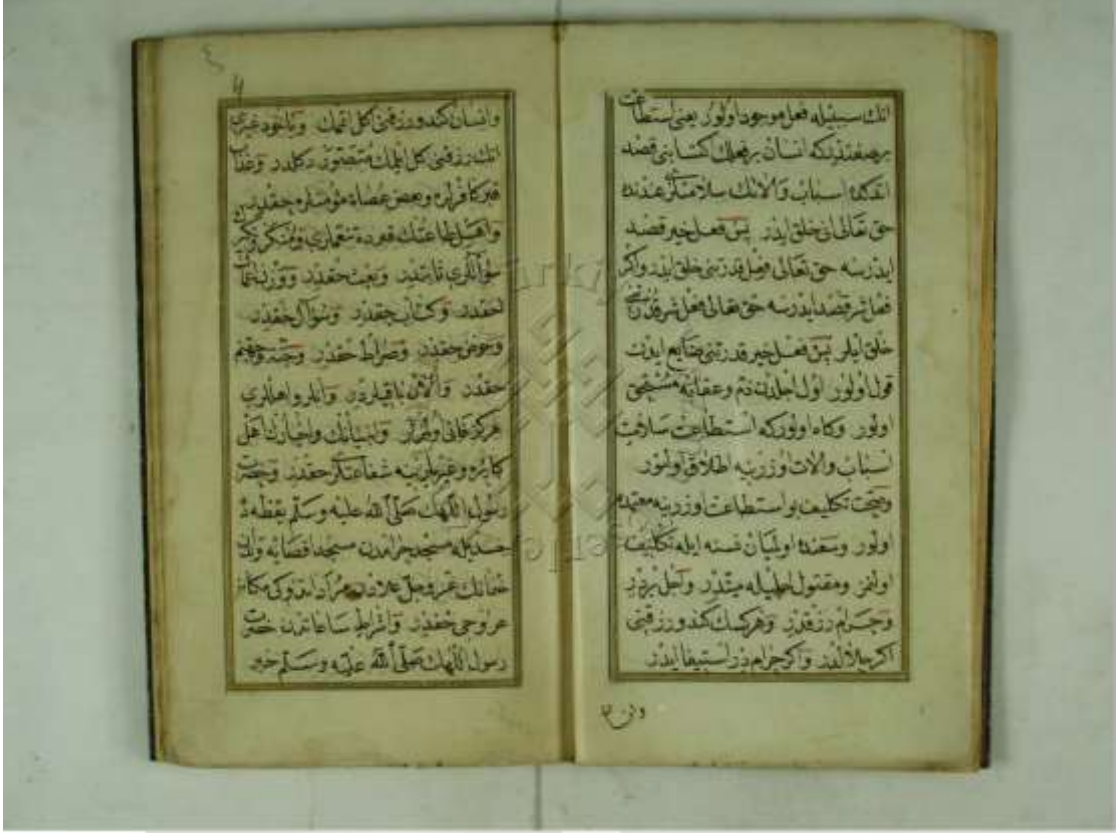 انك سببيله فعل موجود اولور يعنى استطاعت
بر صفتدركه انسان بر فعلك كسابنى قصد
اتدكده اسباب والاتك سلامتلرى عندنده
حق تعالى انى خلق ايدر پس فعل خير قصد
ايدرسه حق تعالى فعل قدرتنى خلق ايدر واكر
فعل شر قصد ايدرسه حق تعالى فعل شر قدرتنى
خلق ايلر پس فعل خير قدرتنى ضايع ايدن
قول اولور اول اجلدن ذم وعقابه مستحق
اولور وكاه اولوركه استطاعت سلامت
اسباب والات اوزرينه اطلاق اولنور
وصحت تكليف بو استطاعت اوزرينه معتمده
اولور وسعنده اولميان نسنه ايله تكليف
اولنمز ومقتول اجليله ميتدر واجل بردر
وحرام رزقدر وهر كمسك كندو رزقنى
اكر حلالدر واكر حرامدر استيفا ايدر
وانسان كندو رزقنى كل اتمك وياخود غيرى
انك رزقنى كل ايلمك متصور دكلدر وعذاب
قبر كافرلره وبعض عصاة مؤمنلره حقدر
واهل طاعتك قبورده تنعملرى ومنكر ونكير
سؤاللرى ثابتدر وبعث حقدر ووزن
حقدر وكتاب حقدر وسؤال حقدر
وحوض حقدر وصراط حقدر وجنة وجهنم
حقدر والآن باقيلردر وانلر واهللرى
هركز فانى اولمزلر وانبيانك واخيارك اهل
كبائره وغيريلرينه شفاعتلرى حقدر وحضرت
رسول اللهك صلى الله عليه وسلم يقظه ده
جسديله مسجد حرامدن مسجد اقصايه واندن
حقانك عز وجل علادن مراد ايتدوكى مكانه
عروجى حقدر واشراط ساعتدن حضرت
رسول اللهك صلى الله عليه وسلم خبر